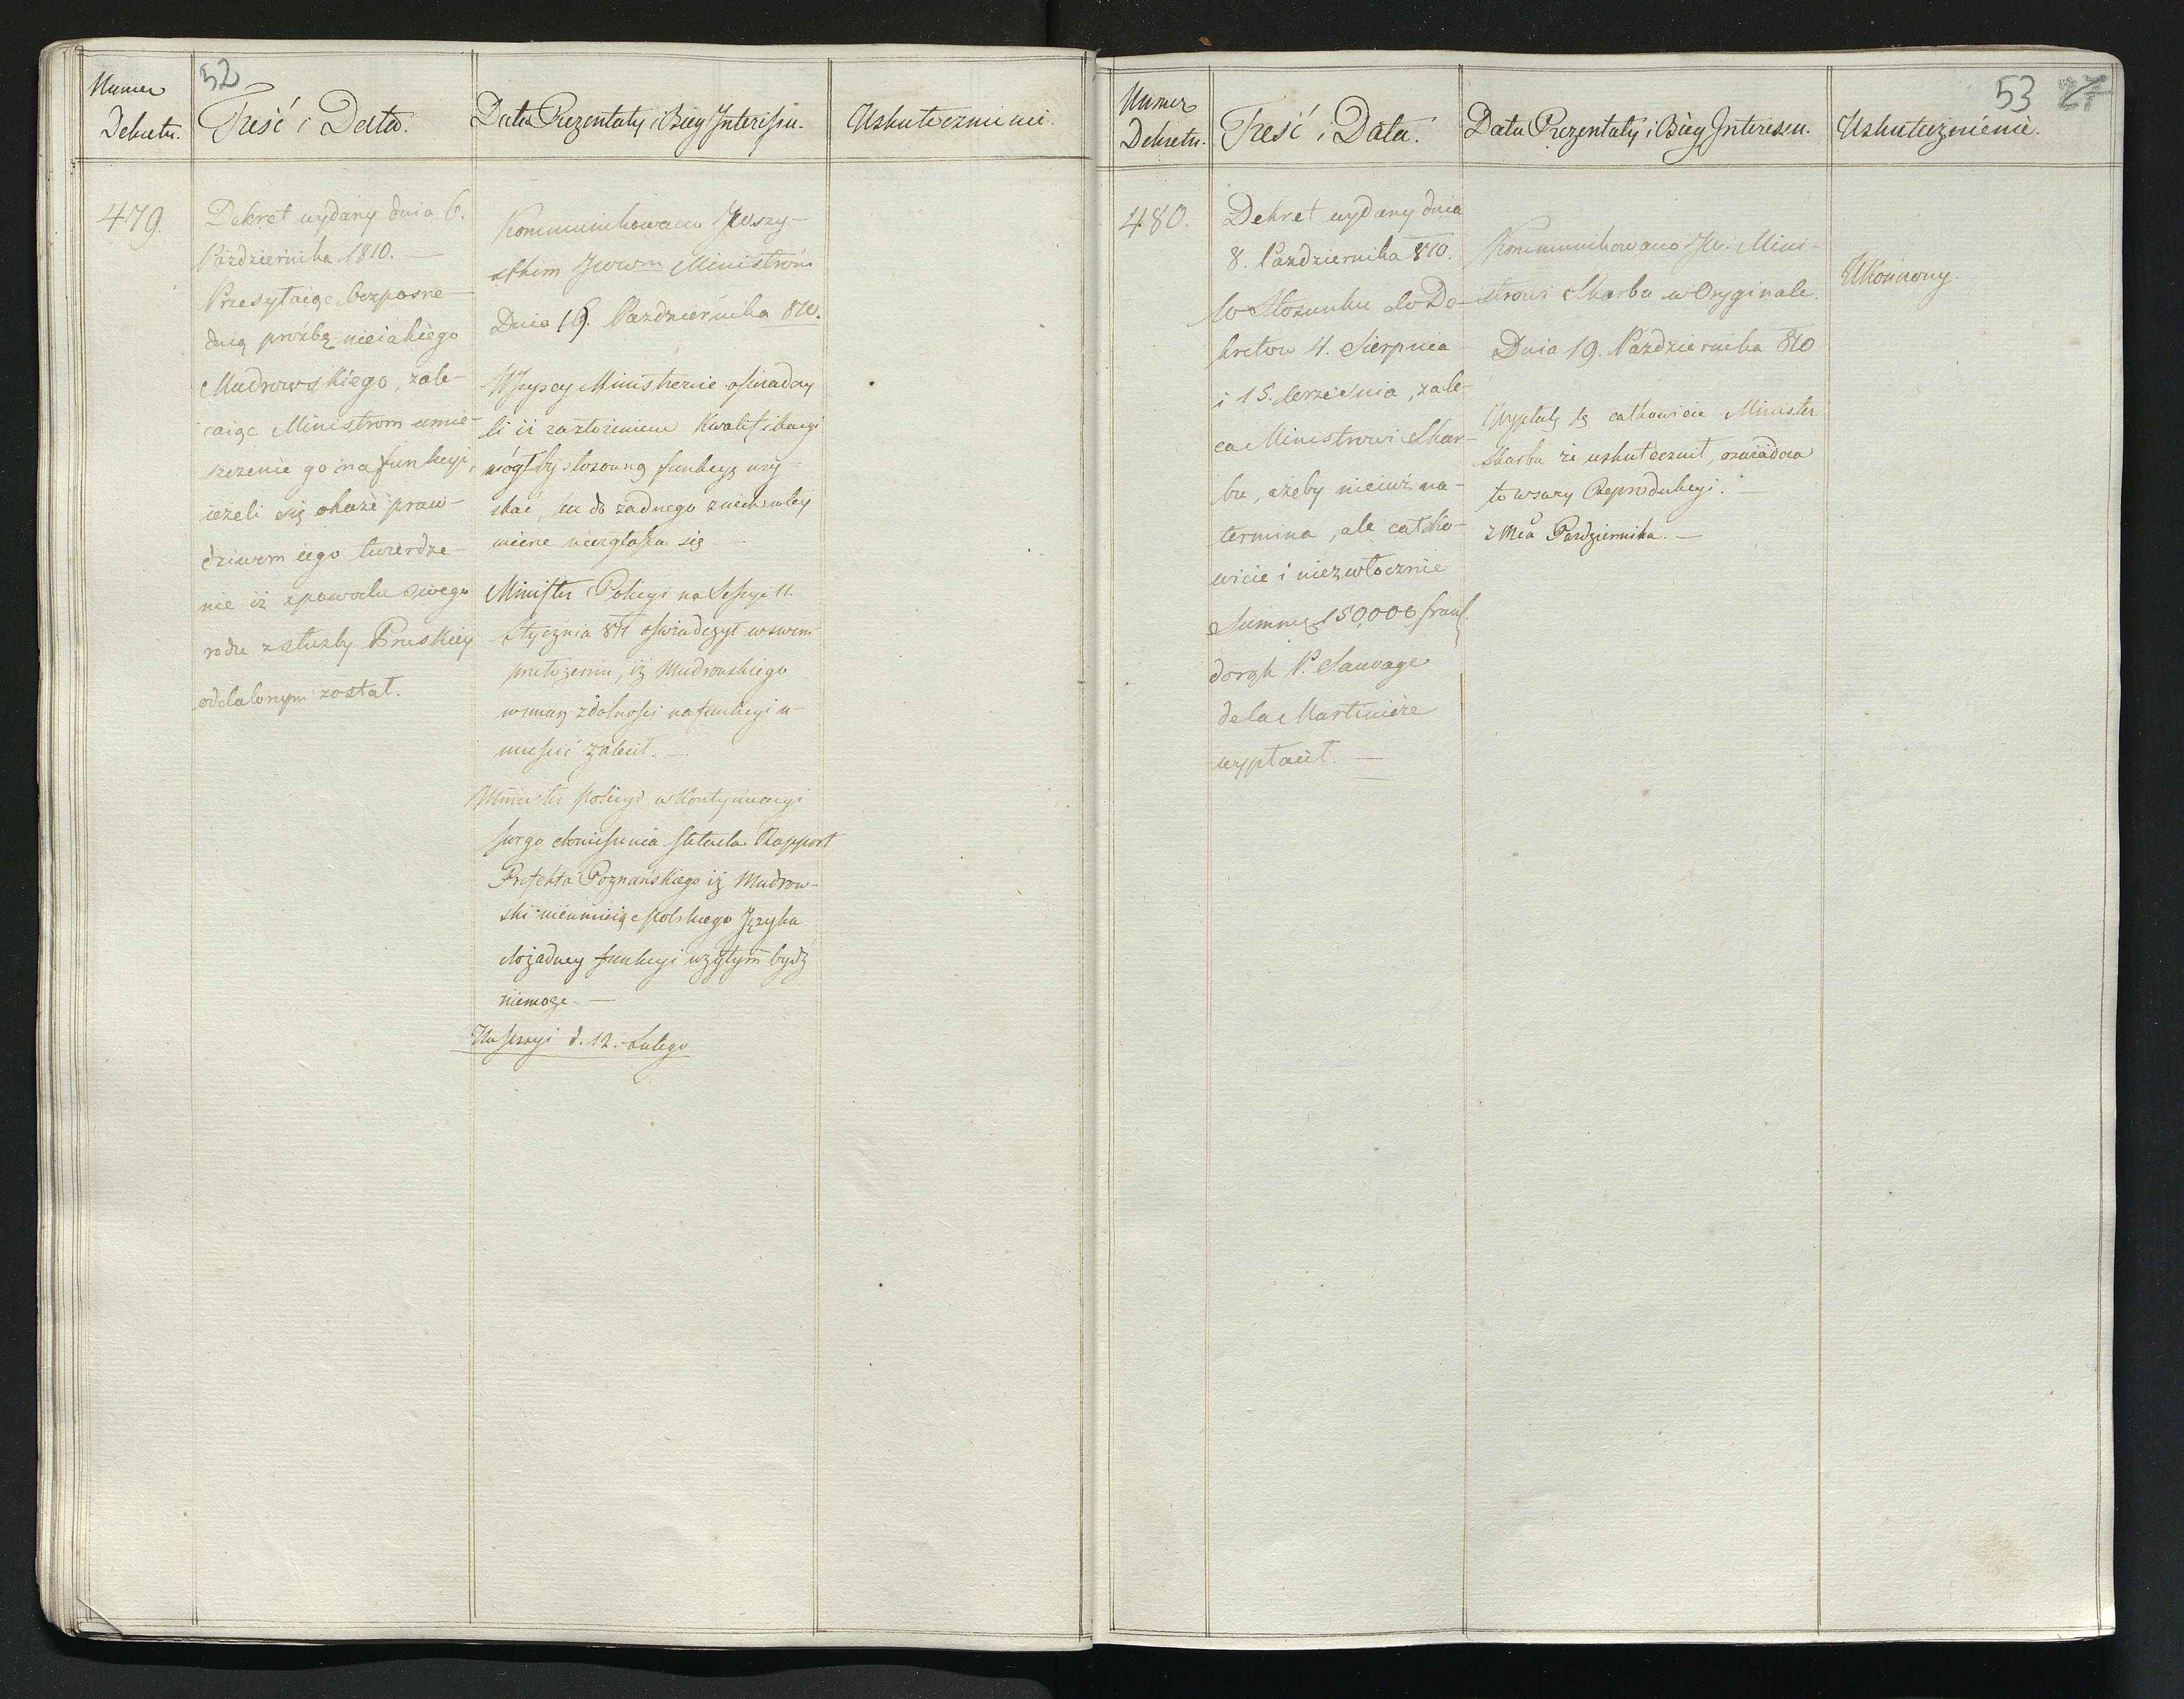 52
Numer
Dekretu.
Treść i Data.
Data Prezentaty i Bieg Interessu.
Uskutecznienie.
479.
Dekret wydany dnia 6.
Października 1810. —
Przesyłaiąc bezpośre-
dnią prośbę nieiakiego
Mudrowskiego, zale-
caiąc Ministrom umie-
szczenie go na funkcyi,
ieżeli się okaże praw-
dziwem iego twierdze-
nie iż z powodu swego
rodu z służby Pruskiey
oddalonym został.
Kommunikowano Wszy-
stkim Jwwm Ministróm
Dnia 19. Października 810.
Wszyscy Ministrowie oświadczy
li iż za złożeniem Kwalifikacyi
mógłby stosowną funkcyą uzy-
skać, lecz do żadnego z nich w tey
mierze niezgłasza się —
Minister Policyi na Sessyi 11.
Stycznia 811 oświadczył w swem
przełożeniu, iż Mudrowskiego
w miarę zdolności na funkcyi u-
mieścić zalecił. —
Minister Policyi w Kontynuacyi
swego doniesienia składa Rapport
Prefekta Poznańskiego iż Mudrow-
ski nieumieiąc polskiego Języka
do żadney funkcyi użytym bydź
niemoże. —
Na Sessyi d. 12. Lutego
53 27
Numer
Dekretu.
Treść i Data.
Data Prezentaty i Bieg Interessu.
Uskutecznienie.
480.
Dekret wydany dnia
8. Października 810.
W Stosunku do De-
kretów 4. Sierpnia
i 15. Września, zale-
ca Ministrowi Skar-
bu, ażeby nieiuż na-
termina, ale całko-
wicie i niezwłocznie
Summę 150,000 fran.
dorgh P. Sauvage
de la Martiniere
wypłacił. —
Kommunikowano Jw. Mini-
strowi Skarbu w Oryginale.
Dnia 19. Października 810
Wypłatę tę całkowicie Minister
Skarbu że uskutecznił, oświadcza
to w swey Reprodukcyi. —
z Mca Października. —
Ukończony.